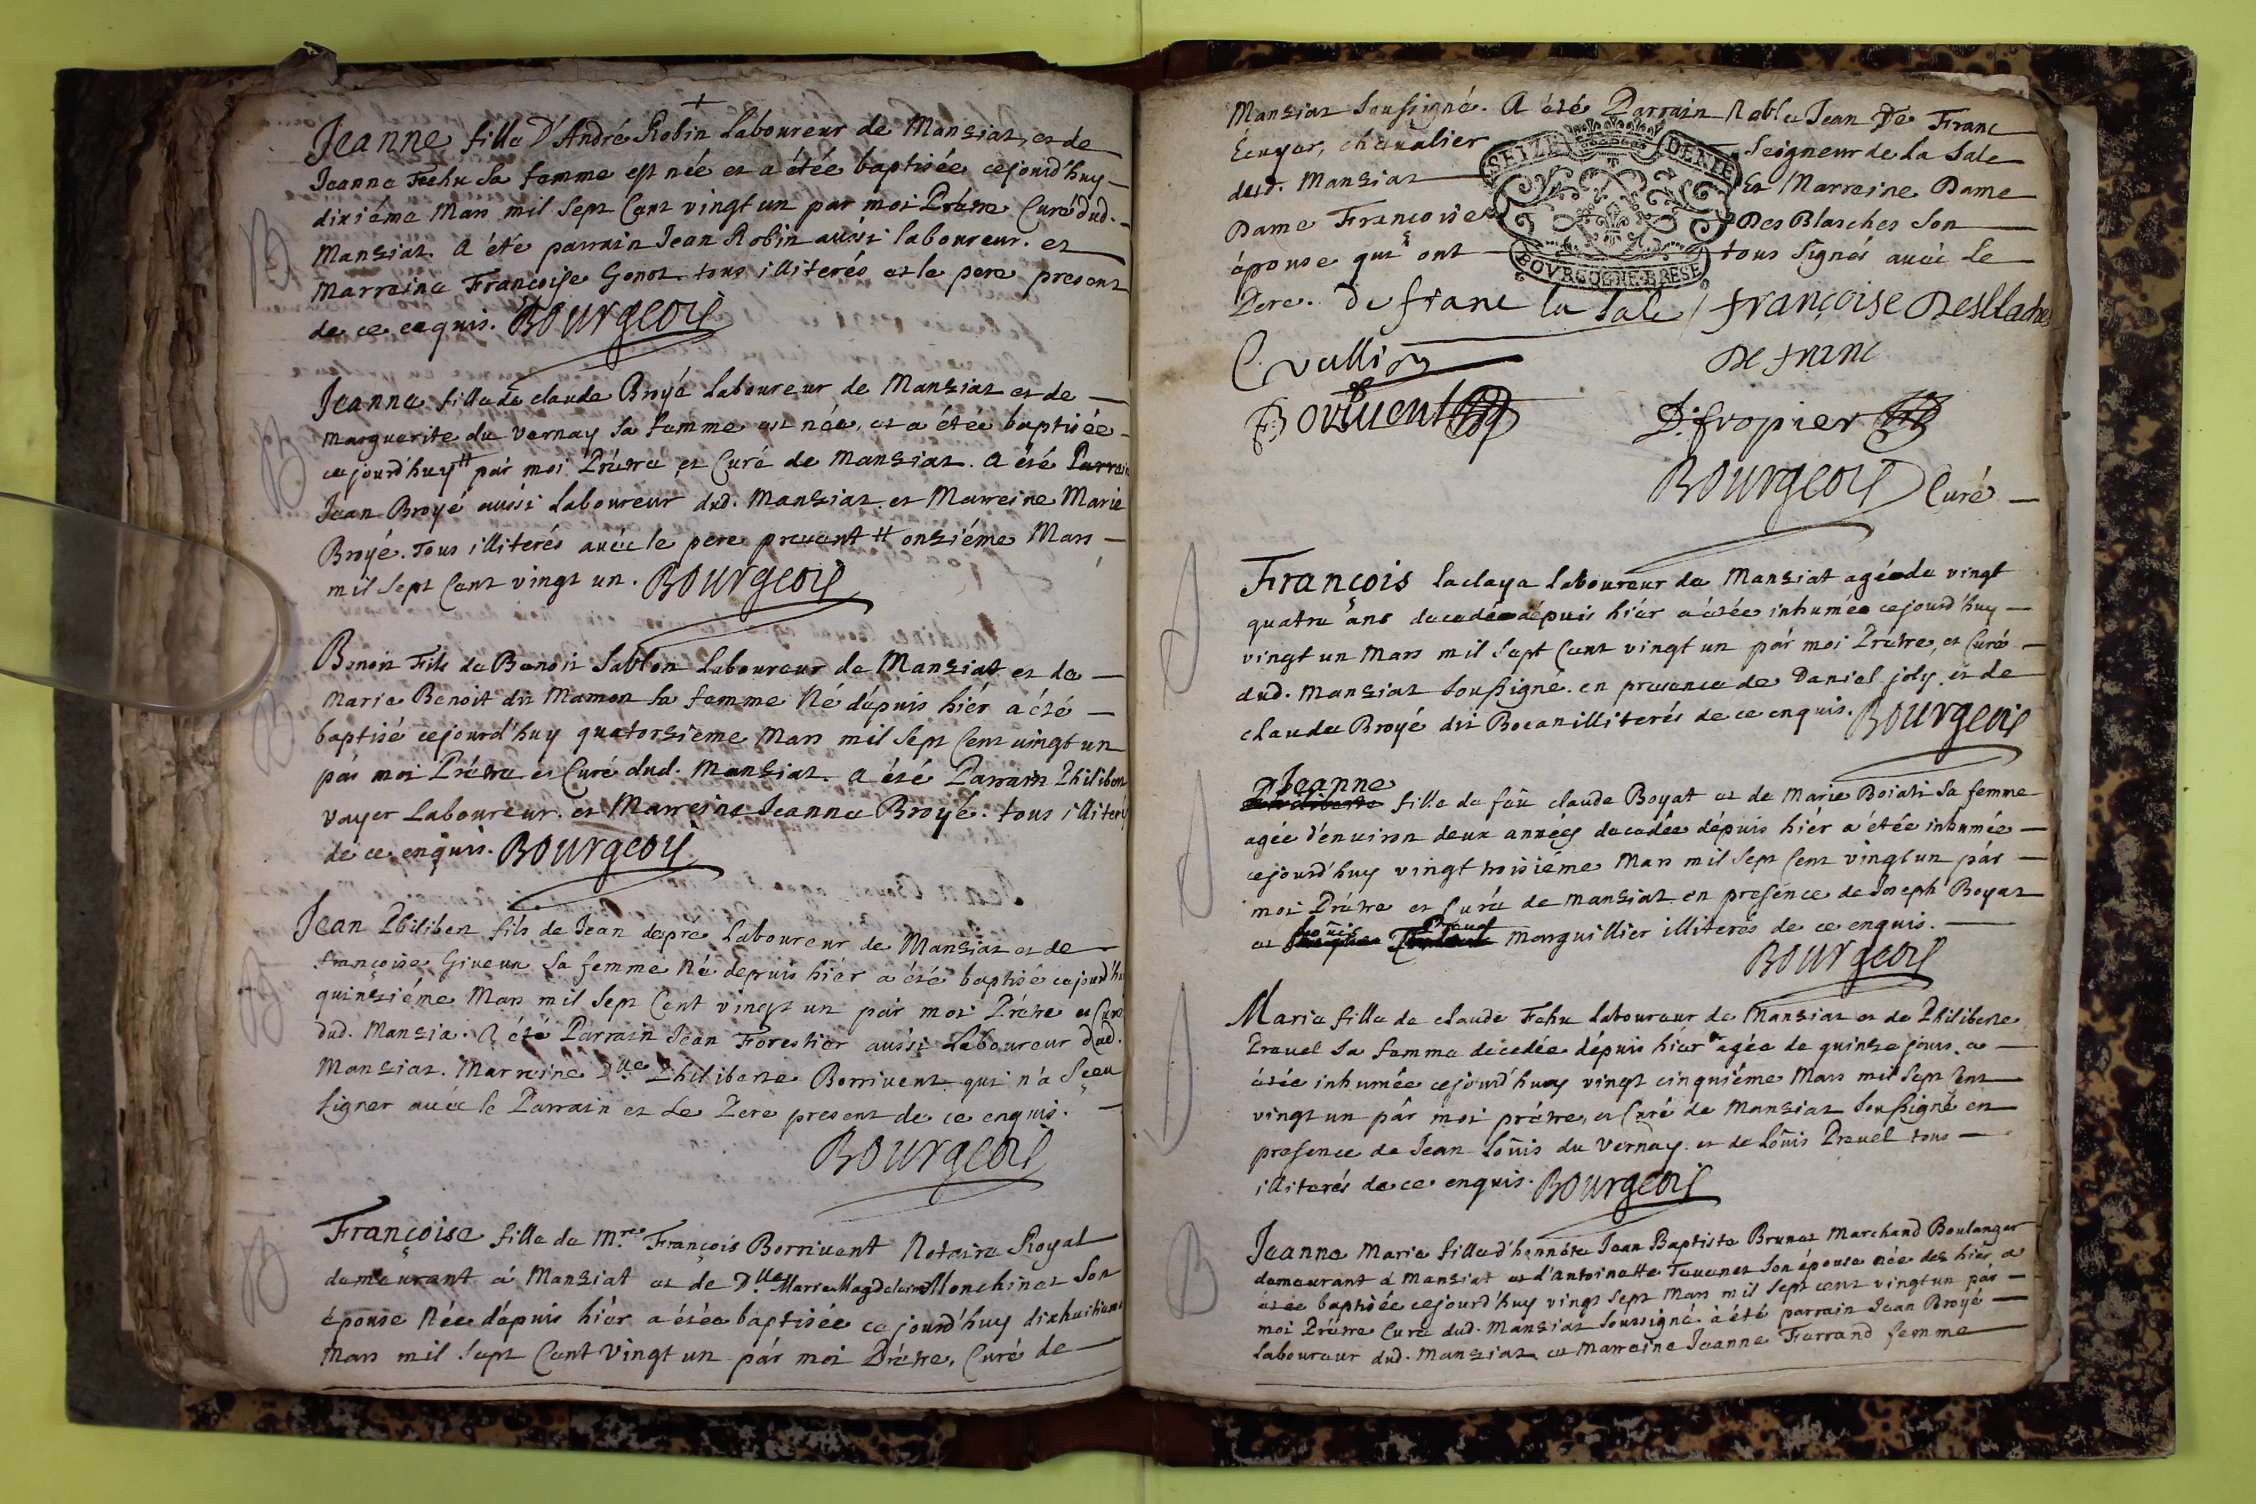 Jeanne fille D'André Robin Laboureur de Mansiat, et de
Jeanne Fechu sa femme est née et a étée baptisée cejourd'huy
dixiéme Mars mil sept Cent vingt un par moi Prétre Curé dud.
Mansiat. A été parrain Jean Robin aussi laboureur. et
Marraine Françoise Gonot tous illiterés et le pere present
de ce enquis. Bourgeois
Jeanne fille de claude Broyé Laboureur de Mansiat et de
Marguerite du Vernay sa femme est née, et a étée baptisée
cejourd'huy # pár moi Prétre et Curé de Mansiat. A été Parrain
Jean Broyé aussi Laboureur dud. Mansiat et Marreine Marie
Broyé. Tous illiterés avéc le pere present # onsiéme Mars
mil sept Cent vingt un. Bourgeois
Benoit Fils de Benoit Sablon Laboureur de Mansiat et de
Marie Benoit dit Mamon sa femme Né dépuis hiér a été
baptisé cejourd'huy quatorsieme Mars mil sept Cent vingt un
pár moi Prétre et Curé dud. Mansiat. a été Parrain Philibert
Vayer Laboureur. et Marreine Jeanne Broyé. tous illiterés
de ce enquis. Bourgeois
Jean Philibert fils de Jean dépré Laboureur de Mansiat et de
françoise Giveun sa femme Né depuis hiér a été baptisé cejourd'hui
quinsiéme Mars mil sept Cent vingt un pár moi Prétre et Curé
dud. Mansia. A été Parrain Jean Forestiér aussi Laboureur dud.
Mansiat. Marreine Dlle Philiberte Borrivent qui n'a sçeu
signer avéc le Parrain et Le Pere present de ce enquis.
Bourgeois
Françoise fille de Mre François Borrivent Notaire Royal
demeurant á Mansiat et de Dlle Marie Magdeleine Monchinet Son
épouse Née dépuis hiér a étée baptisée cejourd'huy dixhuitieme
Mars mil sept Cent Vingt un pár moi Prétre, Curé de
Mansiat soussigné. A été Parrain Noble Jean De Franc
Ecuyer, chevalier Seigneur de La Sale
dud. Mansiat Et Marreine Dame
Dame Françoise Des Blasches Son
épouse qui ont tous signés avéc Le
SEIZE DENIE
BOURGOGNE BRESE
Pere. De franc la sale / françoise Desblaches
C. vullin De franc
F: Borrivent D. fropier
Bourgeois Curé
François laclaya laboureur de Mansiat agé de vingt
quatre ans decedé depuis hiér a été inhumé cejourd'huy
vingt un Mars mil sept Cent vingt un pár moi Prétre, et Curé
dud. Mansiat soussigné. en presence de Daniel joly et de
claude Broyé dit Bocan illiterés de ce enquis. Bourgeois
Jeanne
fille de feû claude Boyat et de Marie Boiat sa femme
agée d'environ deux années decedée dépuis hiér a étée inhumée
cejourd'huy vingt troisiéme Mars mil sept Cent vingt un pár
moi Prétre et Curé de Mansiat en presence de Joseph Boyat
et Loüis Pravel Marguillier illiterés de ce enquis.
Bourgeois
Marie fille de claude Fehu Laboureur de Mansiat et de Philiberte
Pravel sa femme decedée dépuis hiér agée de quinse jours a
étée inhumée cejourd'huy vingt cinquiéme Mars mil sept Cent
vingt un pár moi prétre, et Curé de Mansiat soussigné en
presence de Jean Loüis du Vernay. et de Loüis Pravel tous
illiterés de ce enquis. Bourgeois
Jeanne Marie fille d'honnéte Jean Baptiste Brunet Marchand Boulanger
demeurant á Mansiat et d'Antoinette Tavenet son épouse née des hiér a
étée baptisée cejourd'huy vingt sept Mars mil sept cent vingt un pár
moi Prétre Curé dud. Mansiat soussigné à été parrain Jean Broyé
laboureur dud. Mansiat et Marreine Jeanne Farrand femme